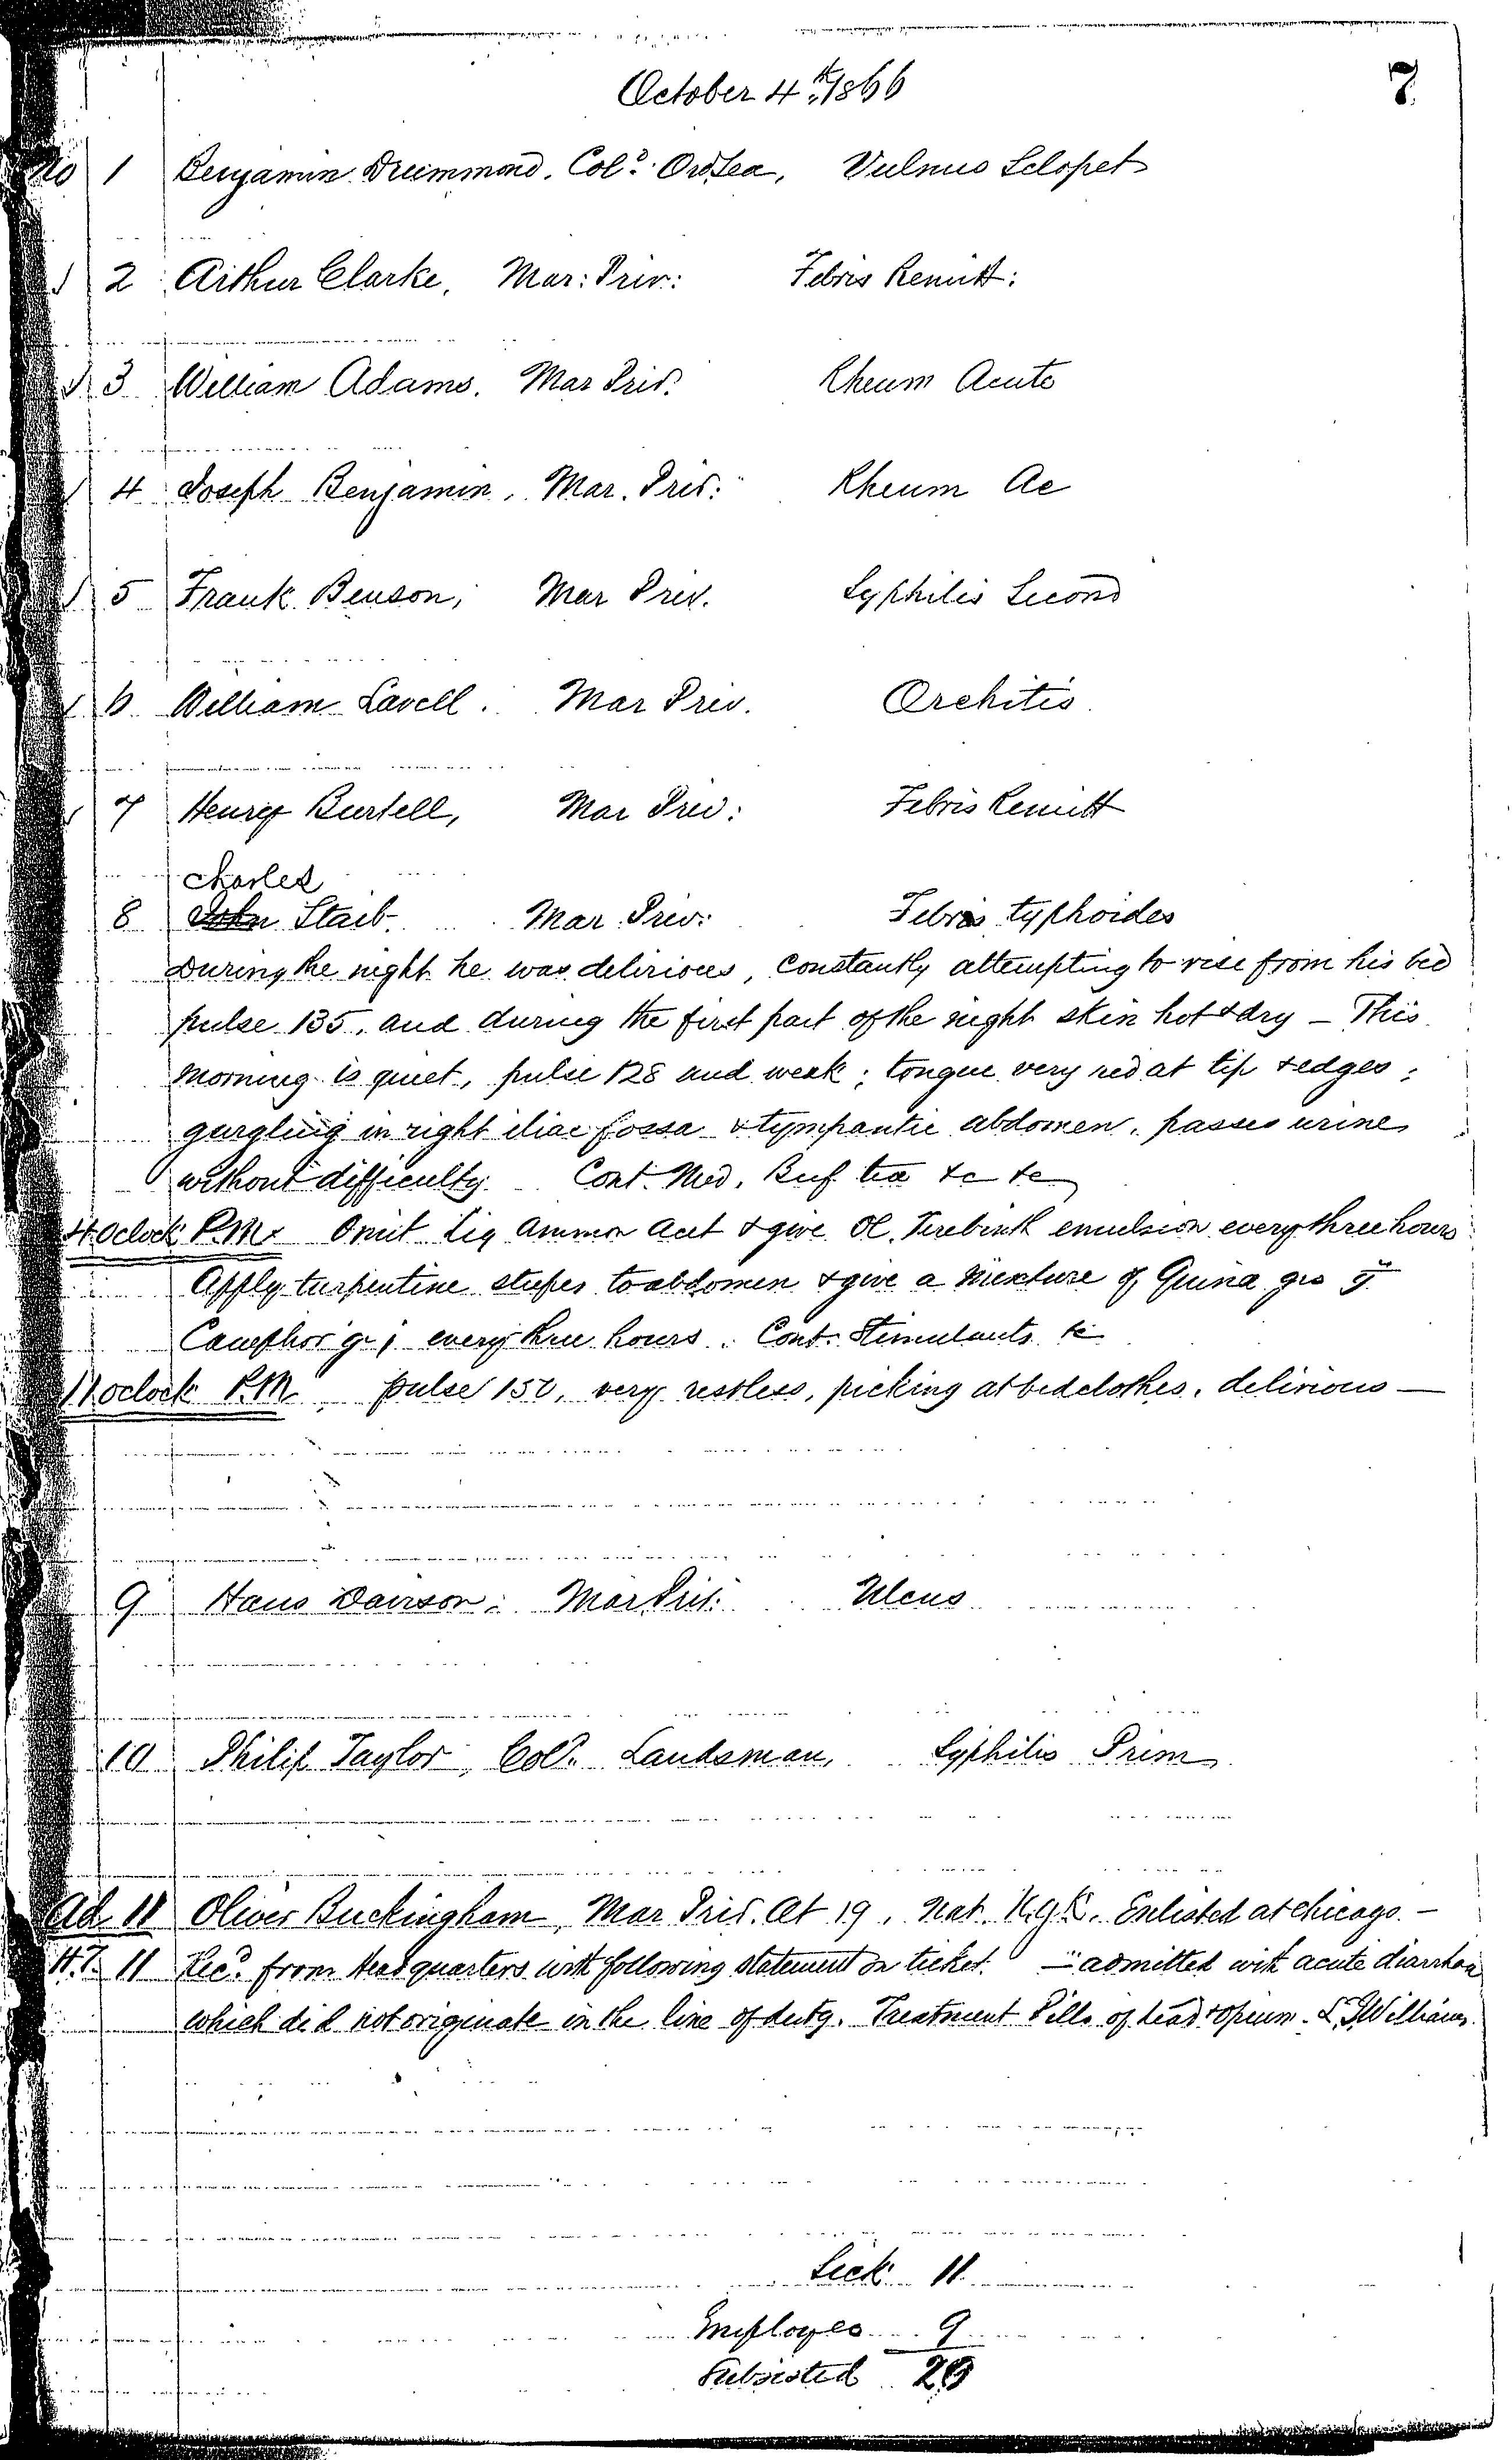 7
October 4th 1866
No 1 Benjamin Drummond. Cold. Ord Sea, Vulnus Sclopet
2 Arthur Clarke. Mar: Priv: Febris Remitt:
3 William Adams. Mar Priv. Rheum Acute
4 Joseph Benjamin, Mar. Priv: Rheum Ac
5 Frank Benson, Mar Priv. Syphilis Second
6 William Lavell. Mar Priv. Orchitis
7 Henry Burtell, Mar Priv: Febris Remitt
Charles
8 John Staib. Mar. Priv: Febris typhoides
During the night he was delirious, constantly attempting to rise from his bed
pulse 135, and during the first part of the night skin hot & dry — This
morning is quiet, pulse 128 and weak; tongue very red at tip & edges;
gurgling in right iliac fossa & tympantic abdomen, passes urine
without difficulty. Cont. Med. Beef tea &c &c
4 Oclock P.M. Omit Liq Ammon Acet & give Ol. Terebinth emulsion every three hours
Apply turpentine stupes to abdomen & give a mixture of Quina grs ij
Camphor gr j every three hours. Cont. Stimulants &c
11 oclock P.M. pulse 150, very restless, picking at bedclothes, delirious —
9 Hans Dawson. Mar Priv: Ulcus
10 Philip Taylor, Cold. Landsman, Syphilis Prim
Ad. 11 Oliver Buckingham, Mar Priv. Æt 19, Nat. Enlisted at Chicago. —
H.T. 11 Recd. from Headquarters with following statement on ticket. — "admitted with acute diarrhœa
which did not originate in the line of duty. Treatment Pills of Lead & Opium. Williams
Sick 11
Employes 9
Subsisted 20